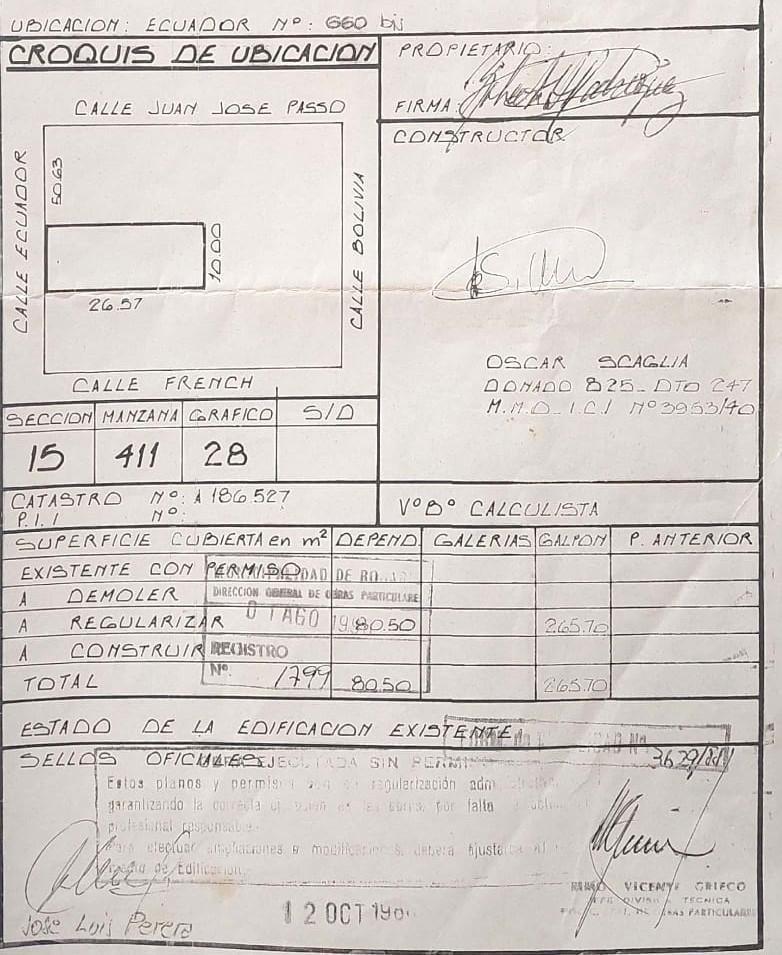 UBICACION: ECUADOR Nº: 660 bis
CROQUIS DE UBICACION
CALLE JUAN JOSE PASSO
CALLE ECUADOR
50.63
10.00
26.57
CALLE BOLIVIA
CALLE FRENCH
PROPIETARIO:
FIRMA:
CONSTRUCTOR
OSCAR SCAGLIA
DONADO 825_ DTO 247
M.M.O_ I.C.I Nº 3953/40
SECCION MANZANA GRAFICO S/D
15 411 28
CATASTRO Nº: A 186.527
P.I.I Nº:
VºBº CALCULISTA
SUPERFICIE CUBIERTA en m² DEPEND. GALERIAS GALPON P. ANTERIOR
EXISTENTE CON PERMISO
A DEMOLER
A REGULARIZAR 80.50 265.70
A CONSTRUIR
TOTAL 80.50 265.70
DAD DE
DIRECCION GENERAL DE OBRAS PARTICULARE
AGO
REGISTRO
Nº 1799
ESTADO DE LA EDIFICACION EXISTENTE
SELLOS OFICIALES
3629/
EJECUTADA SIN PERMI
Estos planos y permiso son de regularización
garantizando la correcta las obras, por falta
profesional responsable.
Para efectuar ampliaciones o modificaciones, deberá ajustarse al
de Edificación
12 OCT
José Luis Perera
VICENTE GRIECO
JEFE DIVISION TECNICA
DE OBRAS PARTICULARES